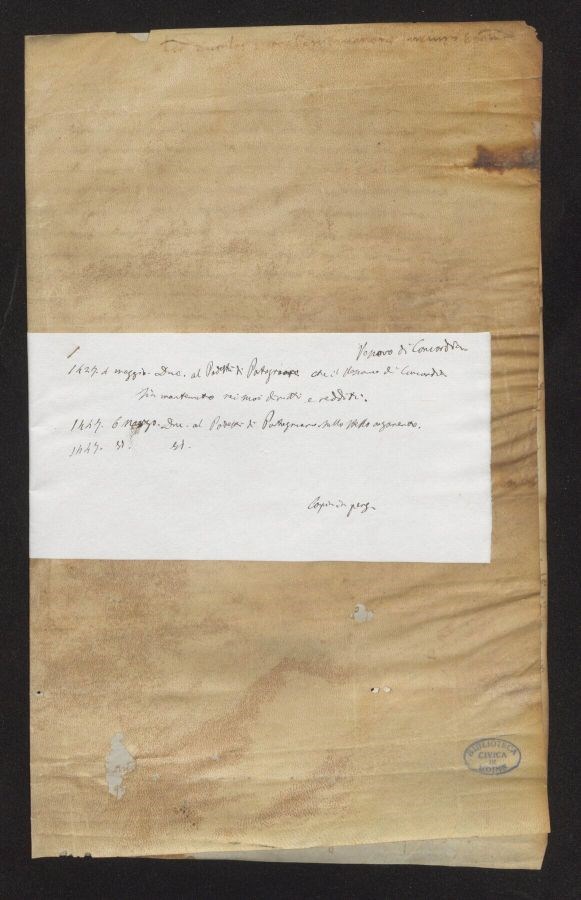 1
Vescovo di Concordia
1427. 4 maggio. Duc. al Podestà di Portogruaro che il Vescovo di Concordia
sia mantenuto nei suoi diritti e redditi.
1447. 6 marzo. Duc. al Podestà di Portogruaro sullo stesso argomento.
1447. id. id.
Copia in perg.
BIBLIOTECA
CIVICA
DI
UDINE